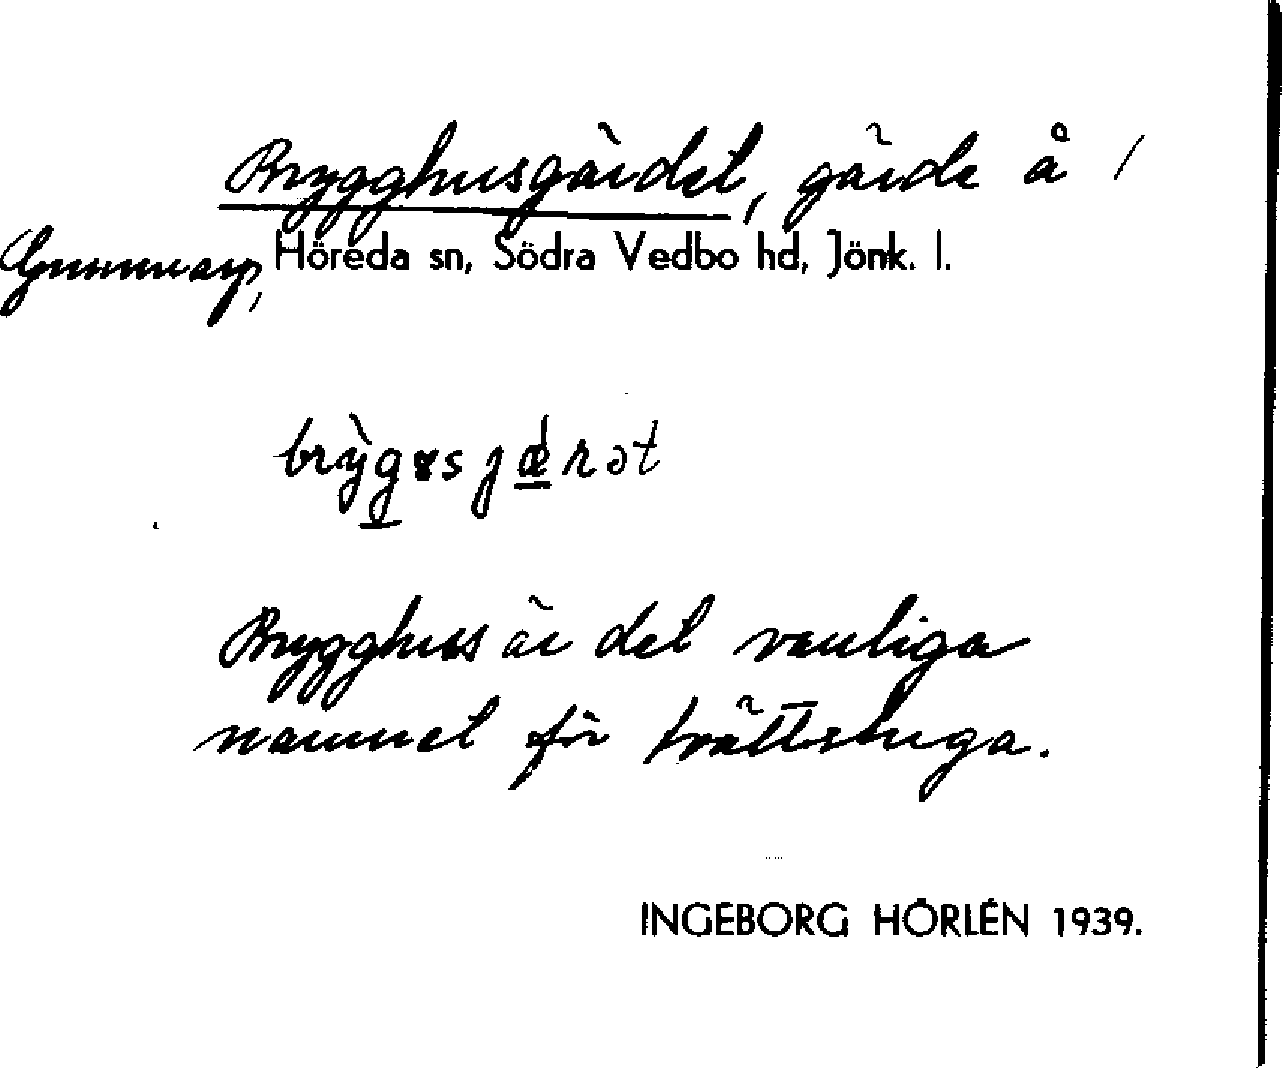 Brygghusgärdet, gärde å /
Gunnarp, Höreda sn, Södra Vedbo hd, Jönk. l.
brỳgɤsjæ̀rət
Brygghus är det vanliga
namnet för tvättstuga.
INGEBORG HÖRLÉN 1939.